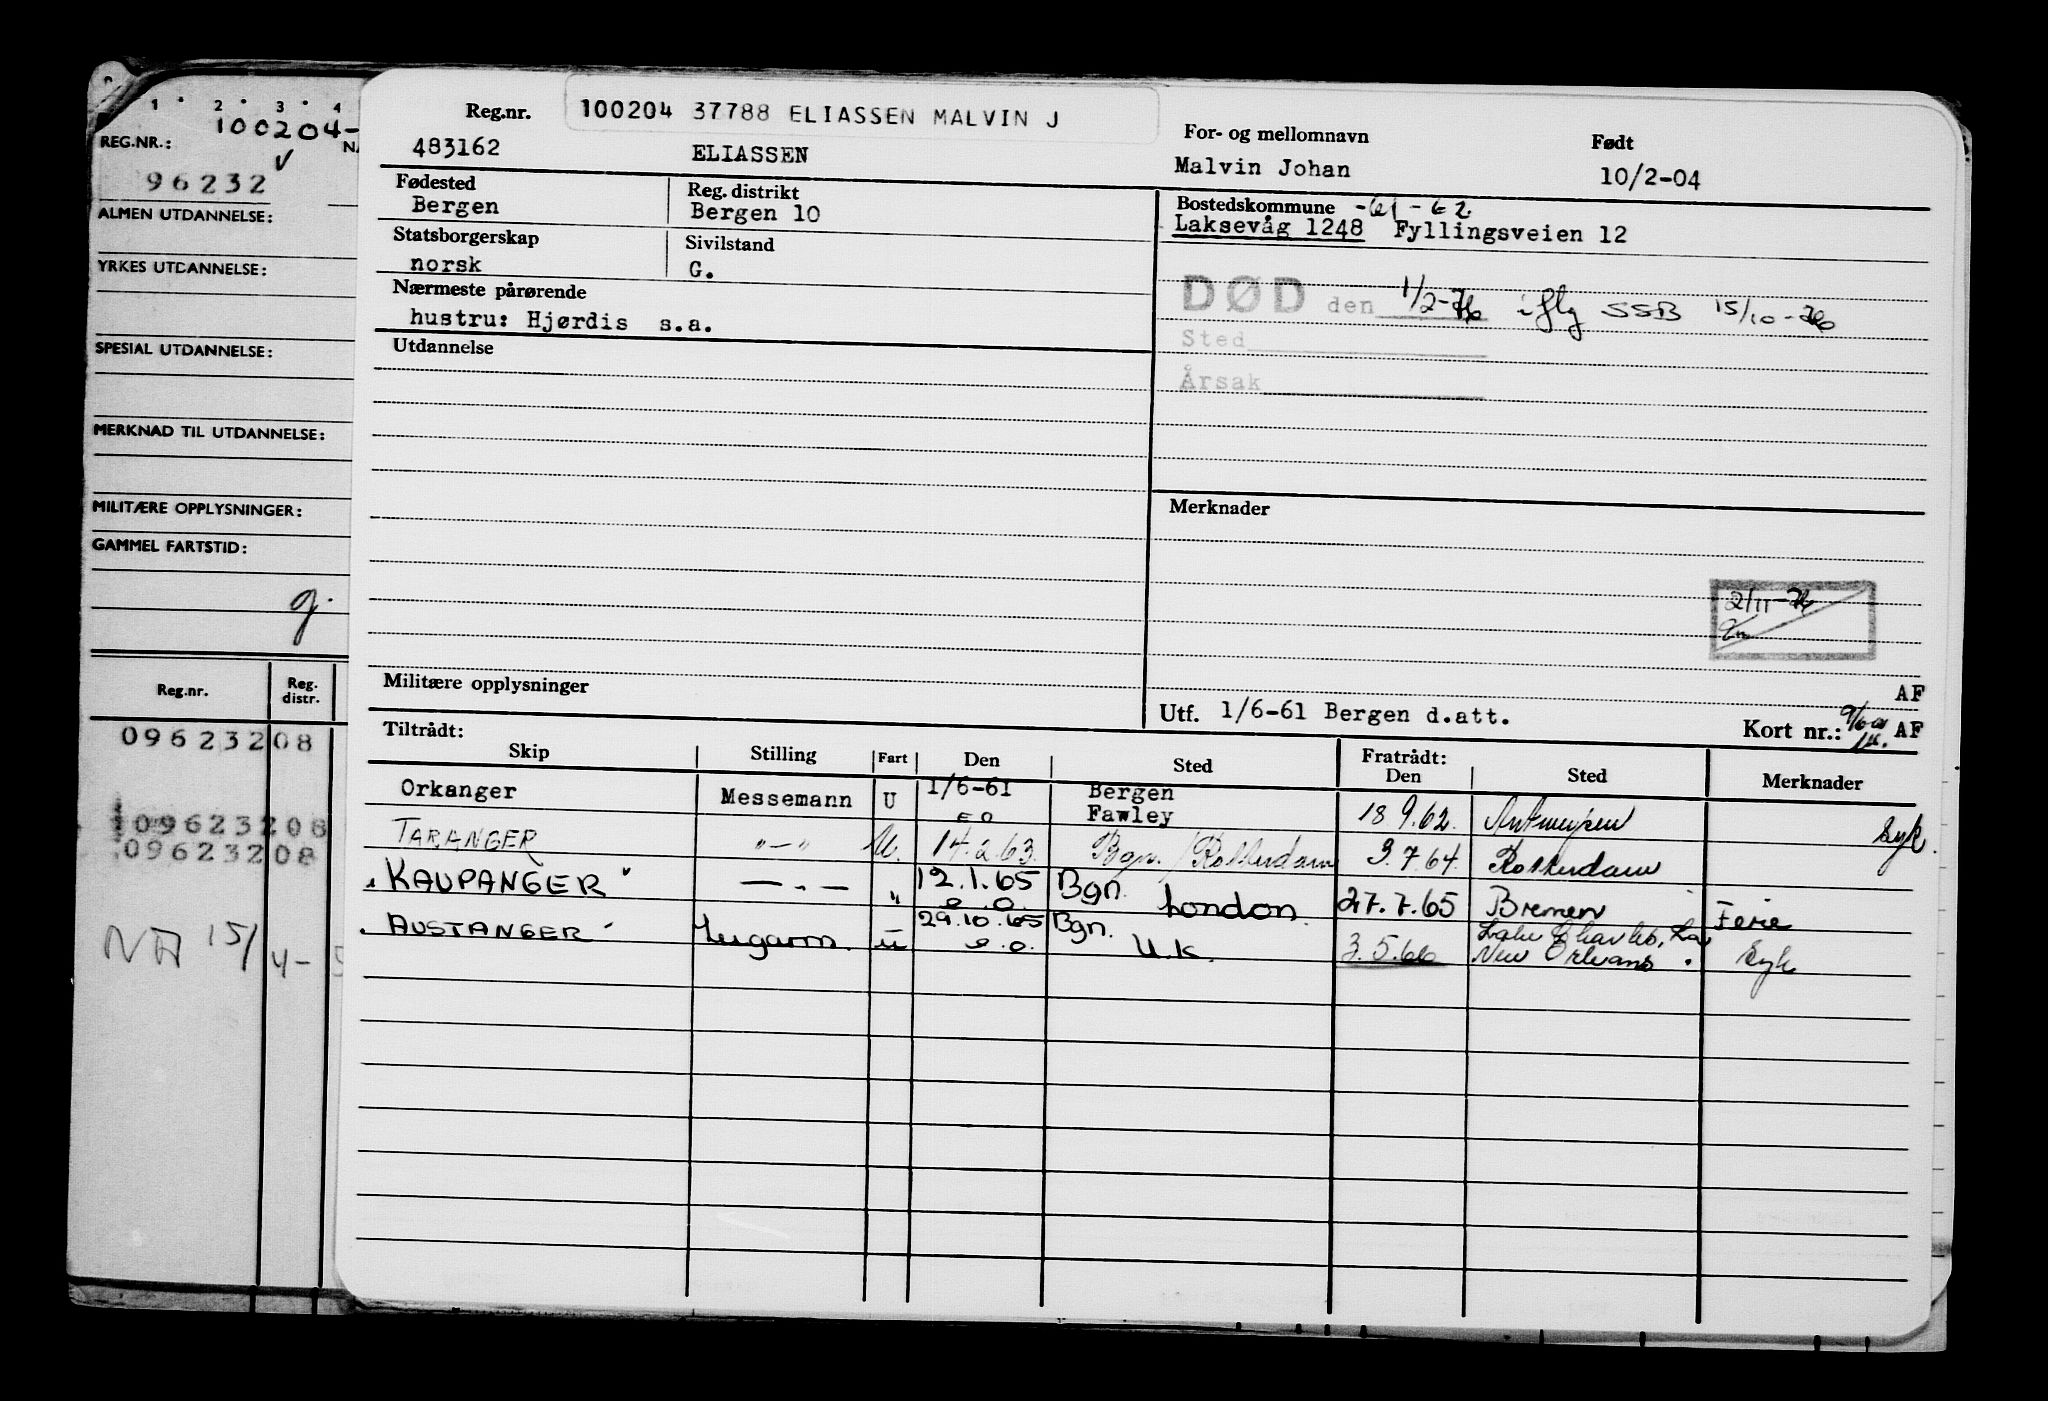 1 2 3 4
100204-
REG.NR.:
96232
ALMEN UTDANNELSE:
YRKES UTDANNELSE:
SPESIAL UTDANNELSE:
MERKNAD TIL UTDANNELSE:
MILITÆRE OPPLYSNINGER:
GAMMEL FARTSTID:
g.
Reg.nr. Reg. distr.
09623208
09623208
09623208
15/4-
Reg.nr. 100204 37788 ELIASSEN MALVIN J For- og mellomnavn Født
483162 ELIASSEN Malvin Johan 10/2-04
Fødested Reg. distrikt Bostedskommune -61-62
Bergen Bergen 10 Laksevåg 1248 Fyllingsveien 12
Statsborgerskap Sivilstand
norsk G.
Nærmeste pårørende DØD den 1/2-76 iflg SSB 15/10-76
hustru: Hjørdis s.a. Sted
Utdannelse Årsak
Merknader
2/11-76
Militære opplysninger AF
Utf. 1/6-61 Bergen d.att. Kort nr.: AF
Tiltrådt: Fratrådt:
Skip Stilling Fart Den Sted Den Sted Merknader
Orkanger Messemann U 1/6-61 Bergen
e o Fawley 18.9.62. Antwerpen Syk.
TARANGER "-" U. 14.2.63. Bgn./Rotterdam 3.7.64. Rotterdam
"KAUPANGER" — . — " 12.1.65 e.o. Bgn. London. 27.7.65 Bremen Ferie
AUSTANGER Lugarm. U 29.10.65 e.o. Bgn. U.K. 3.5.66 Lake Charles, La,
New Orleans. Syk